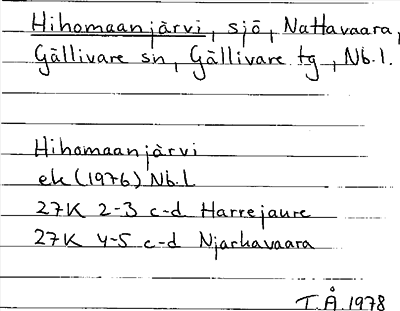 Hihomaanjärvi, sjö, Nattavaara,
Gällivare sn, Gällivare tg, Nb.l.
Hihomaanjärvi
ek (1976) Nb.l
27K 2-3 c-d Harrejaure
27K 4-5 c-d Njarkavaara
T.Å. 1978